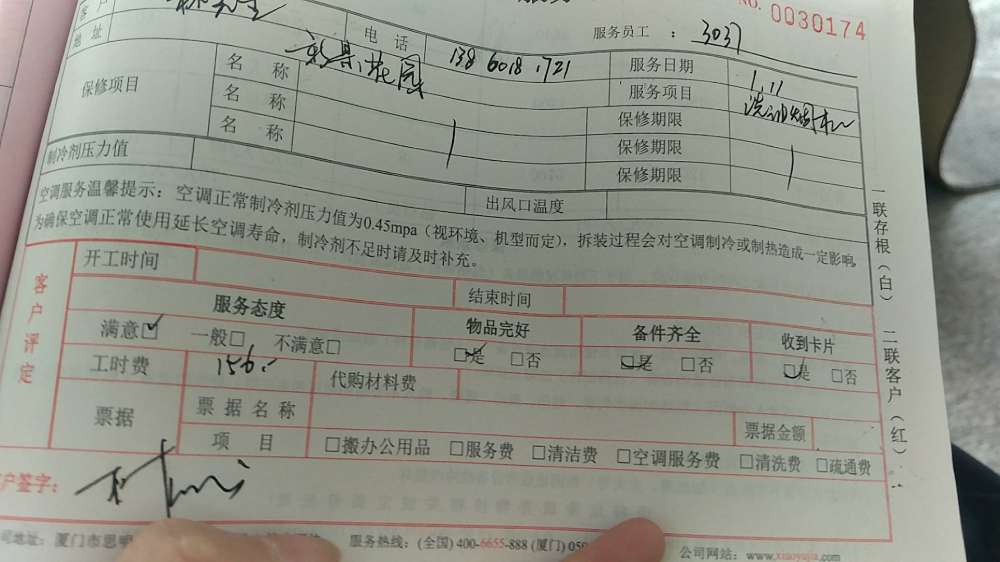 NO. 0030174
客户
地址 电话 138 6018 1721 服务员工 : 3037
保修项目 名称 服务日期 1.11
名称 服务项目 洗油烟机
名称 保修期限
保修期限
制冷剂压力值 保修期限
出风口温度
空调服务温馨提示：空调正常制冷剂压力值为0.45mpa（视环境、机型而定），拆装过程会对空调制冷或制热造成一定影响，
为确保空调正常使用延长空调寿命，制冷剂不足时请及时补充。
客户评定
开工时间 结束时间
服务态度 物品完好 备件齐全 收到卡片
满意□ 一般□ 不满意□ □是 □否 □是 □否 □是 □否
工时费 156. 代购材料费
票据 票据名称 票据金额
项目 □搬办公用品 □服务费 □清洁费 □空调服务费 □清洗费 □疏通费
客户签字：
司地址：厦门市思明 服务热线：(全国) 400-6655-888 (厦门) 059
公司网站：www.xiaoyujia.com
一联存根（白） 二联客户（红）